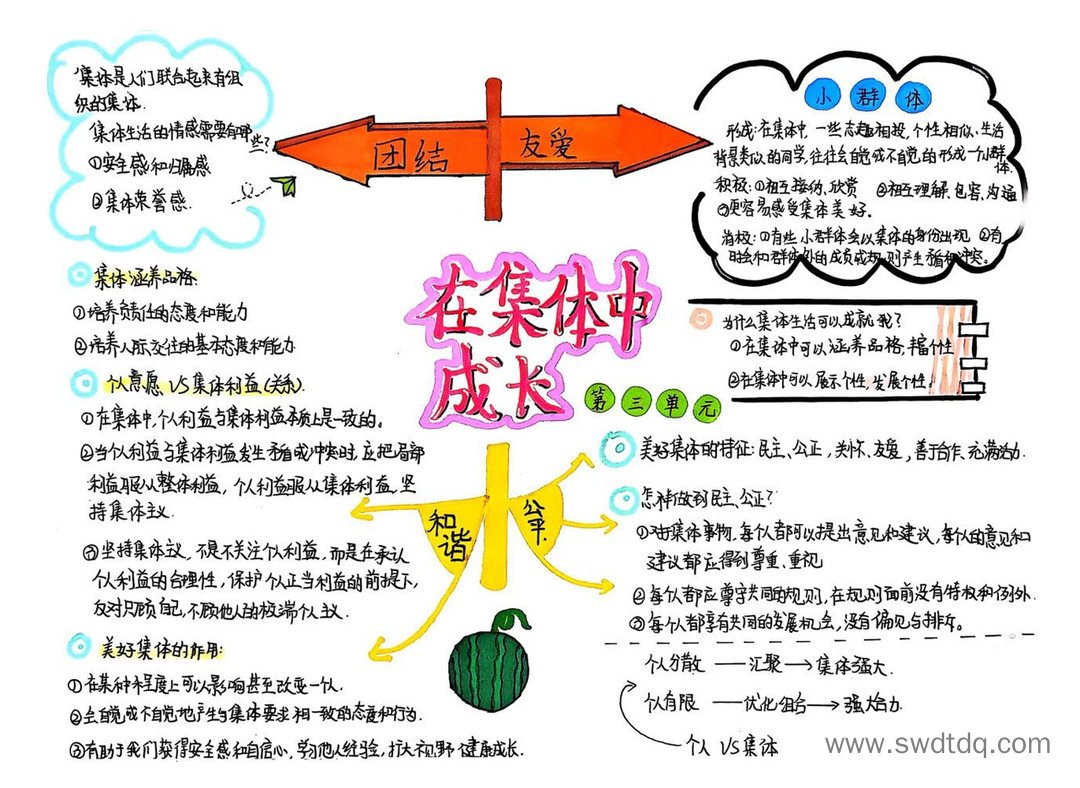 集体是人们联合起来有组
织的集体.
集体生活的情感需要有哪些?
①安全感和归属感
②集体荣誉感.
团结
友爱
小群体
形成:在集体中,一些志趣相投,个性相似、生活
背景类似的同学,往往会自觉或不自觉的形成一小群
体.
积极:①相互接纳、欣赏 ②相互理解、包容、沟通
③更容易感受集体美好。
消极:①有些小群体会以集体的身份出现 ②有
时会和群体外的成员或规则产生矛盾和冲突。
集体涵养品格:
①培养负责任的态度和能力
②培养人际交往的基本态度和能力
个人意愿 VS 集体利益(关系).
①在集体中,个人利益与集体利益本质上是一致的。
②当个人利益与集体利益发生矛盾或冲突时,应把局部
利益服从整体利益,个人利益服从集体利益,坚
持集体主义.
③坚持集体主义,不是不关注个人利益,而是在承认
个人利益的合理性,保护个人正当利益的前提下,
反对只顾自己,不顾他人的极端个人主义.
美好集体的作用:
①在某种程度上可以影响甚至改变一个人.
②会自觉或不自觉地产生与集体要求相一致的态度和行为.
③有助于我们获得安全感和自信心,学习他人经验,扩大视野,健康成长.
在集体中
成长
第三单元
和谐
公平
为什么集体生活可以成就我?
①在集体中可以涵养品格,丰富个性
②在集体中可以展示个性,发展个性。
美好集体的特征:民主、公正,关怀、友爱,善于合作、充满活力.
怎样做到民主、公正?
①对于集体事物,每个人都可以提出意见和建议,每个人的意见和
建议都应得到尊重、重视
②每个人都应尊守共同的规则,在规则面前没有特权和例外.
③每个人都享有共同的发展机会,没有偏见与排斥。
个人分散 — 汇聚 → 集体强大.
个人有限 — 优化组合 → 强大合力.
个人 VS 集体
www.swdtdq.com